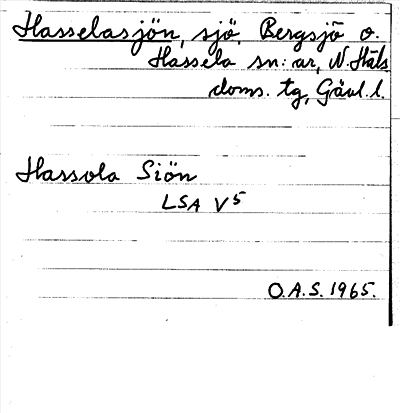 Hasselasjön, sjö, Bergsjö o.
Hassela sn:ar, N. Häls
doms. tg, Gävl. l.
Hassola Siön
LSA V5
O.A.S. 1965.